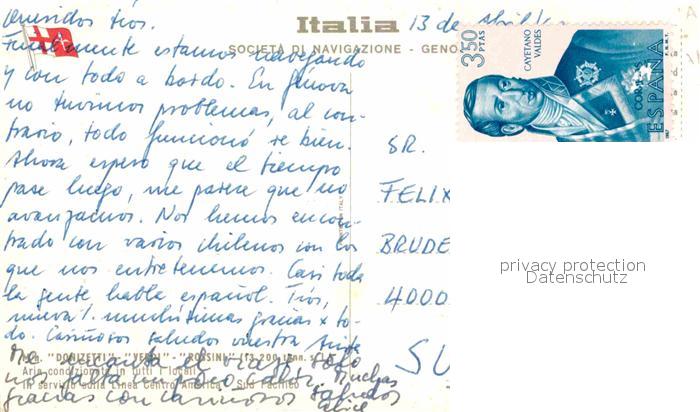 Queridos tíos.
Italia 13 de Abril
SOCIETÀ DI NAVIGAZIONE - GENO
Finalmente estamos navegando
y con todo a bordo. En Génova
no tuvimos problemas, al con-
trario, todo funcionó re bien.
Ahora espero que el tiempo
pase luego, me parece que no
avanzamos. Nos hemos encon-
trado con varios chilenos con los
que nos entretenemos. Casi toda
la gente habla español. Tíos,
nueva/. muchísimas gracias x to-
do. Cariñosos saludos vuestra
"DONIZETTI" - "VERDI" - "ROSSINI" (13.200 tonn. s.l.)
Aria condizionata in tutti i locali
In servizio sulla Linea Centro America - Sud Pacifico
Me encanta el viaje. Sólo
nos falta un poco Muchas
gracias con cariñosos saludos
3'50 PTAS
CAYETANO VALDES
CORREOS
ESPAÑA
SR.
FELIX
BRUDE
4000
SU
IN ITALY
privacy protection
Datenschutz